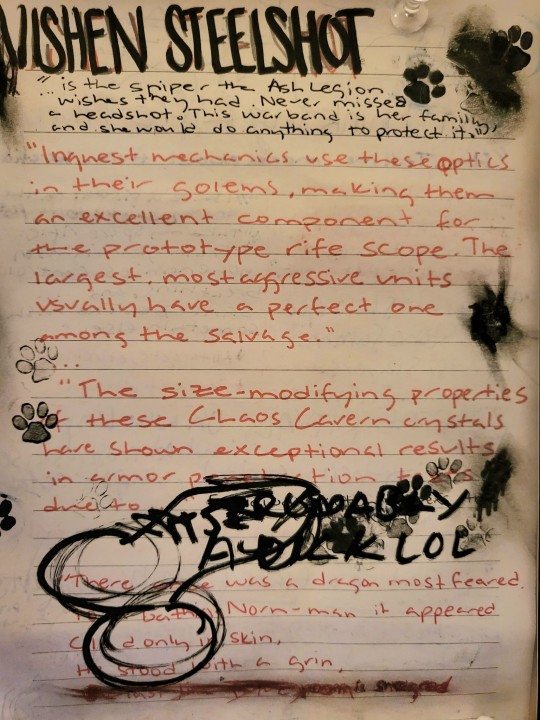 VISHEN STEELSHOT
"... is the sniper the Ash Legion
wishes they had. Never missed
a headshot. This warband is her family,
and she would do anything to protect it."
"Inquest mechanics use these optics
in their golems, making them
an excellent component for
the prototype rife scope. The
largest, most aggressive units
usually have a perfect one
among the salvage."
...
"The size-modifying properties
of these Chaos Cavern crystals
have shown exceptional results
in armor
due to
A DICK LOL
"There once was a dragon most feared.
Norn-man it appeared
only skin,
He stood with a grin,